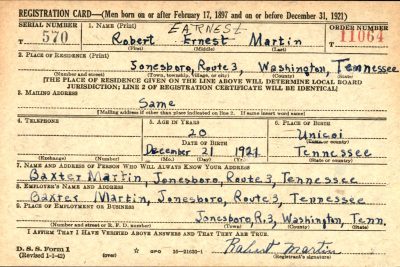 REGISTRATION CARD—(Men born on or after February 17, 1897 and on or before December 31, 1921)
SERIAL NUMBER 1. NAME (Print) EARNEST ORDER NUMBER
T 570 Robert Ernest Martin T 11064
(First) (Middle) (Last)
2. PLACE OF RESIDENCE (Print)
Jonesboro, Route 3, Washington, Tennessee
(Number and street) (Town, township, village, or city) (County) (State)
[THE PLACE OF RESIDENCE GIVEN ON THE LINE ABOVE WILL DETERMINE LOCAL BOARD
JURISDICTION; LINE 2 OF REGISTRATION CERTIFICATE WILL BE IDENTICAL]
3. MAILING ADDRESS
Same
[Mailing address if other than place indicated on line 2. If same insert word same]
4. TELEPHONE 5. AGE IN YEARS 6. PLACE OF BIRTH
20 Unicoi
DATE OF BIRTH (Town or county)
December 21 1921 Tennessee
(Exchange) (Number) (Mo.) (Day) (Yr.) (State or country)
7. NAME AND ADDRESS OF PERSON WHO WILL ALWAYS KNOW YOUR ADDRESS
Baxter Martin, Jonesboro, Route 3, Tennessee
8. EMPLOYER'S NAME AND ADDRESS
Baxter Martin, Jonesboro, Route 3, Tennessee
9. PLACE OF EMPLOYMENT OR BUSINESS
Jonesboro, Rt.3, Washington, Tenn.
(Number and street or R. F. D. number) (Town) (County) (State)
I AFFIRM THAT I HAVE VERIFIED ABOVE ANSWERS AND THAT THEY ARE TRUE.
D. S. S. Form 1 GPO 16—21630-1 Robert Martin
(Revised 1-1-42) (Registrant's signature)